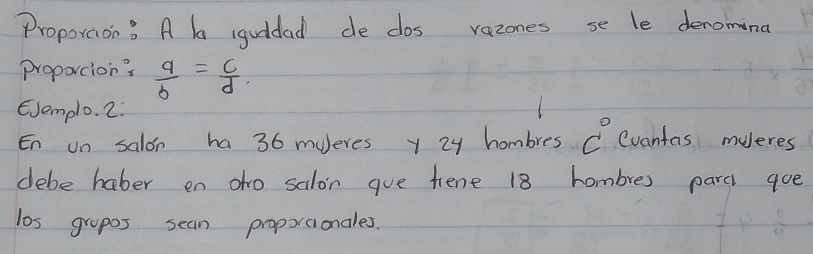 Proporción: A la iguddad de dos razones se le denomina
proporcion: a/b = c/d.
Ejemplo.2:
En un salón ha 36 mujeres y 24 hombres ¿Cuantas mujeres
debe haber en otro salón que tiene 18 hombres para que
los grupos sean proporcionales.